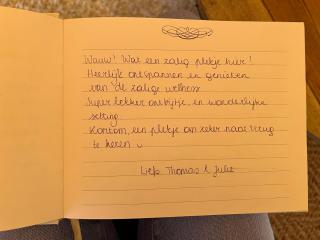 Wauw! Wat een zalig plekje hier!
Heerlijk ontspannen en genieten
van de zalige wellness
Super lekker ontbijtje, en wonderlijke
setting.
Kortom, een plekje om zeker naar terug
te keren
Liefs Thomas & Julie